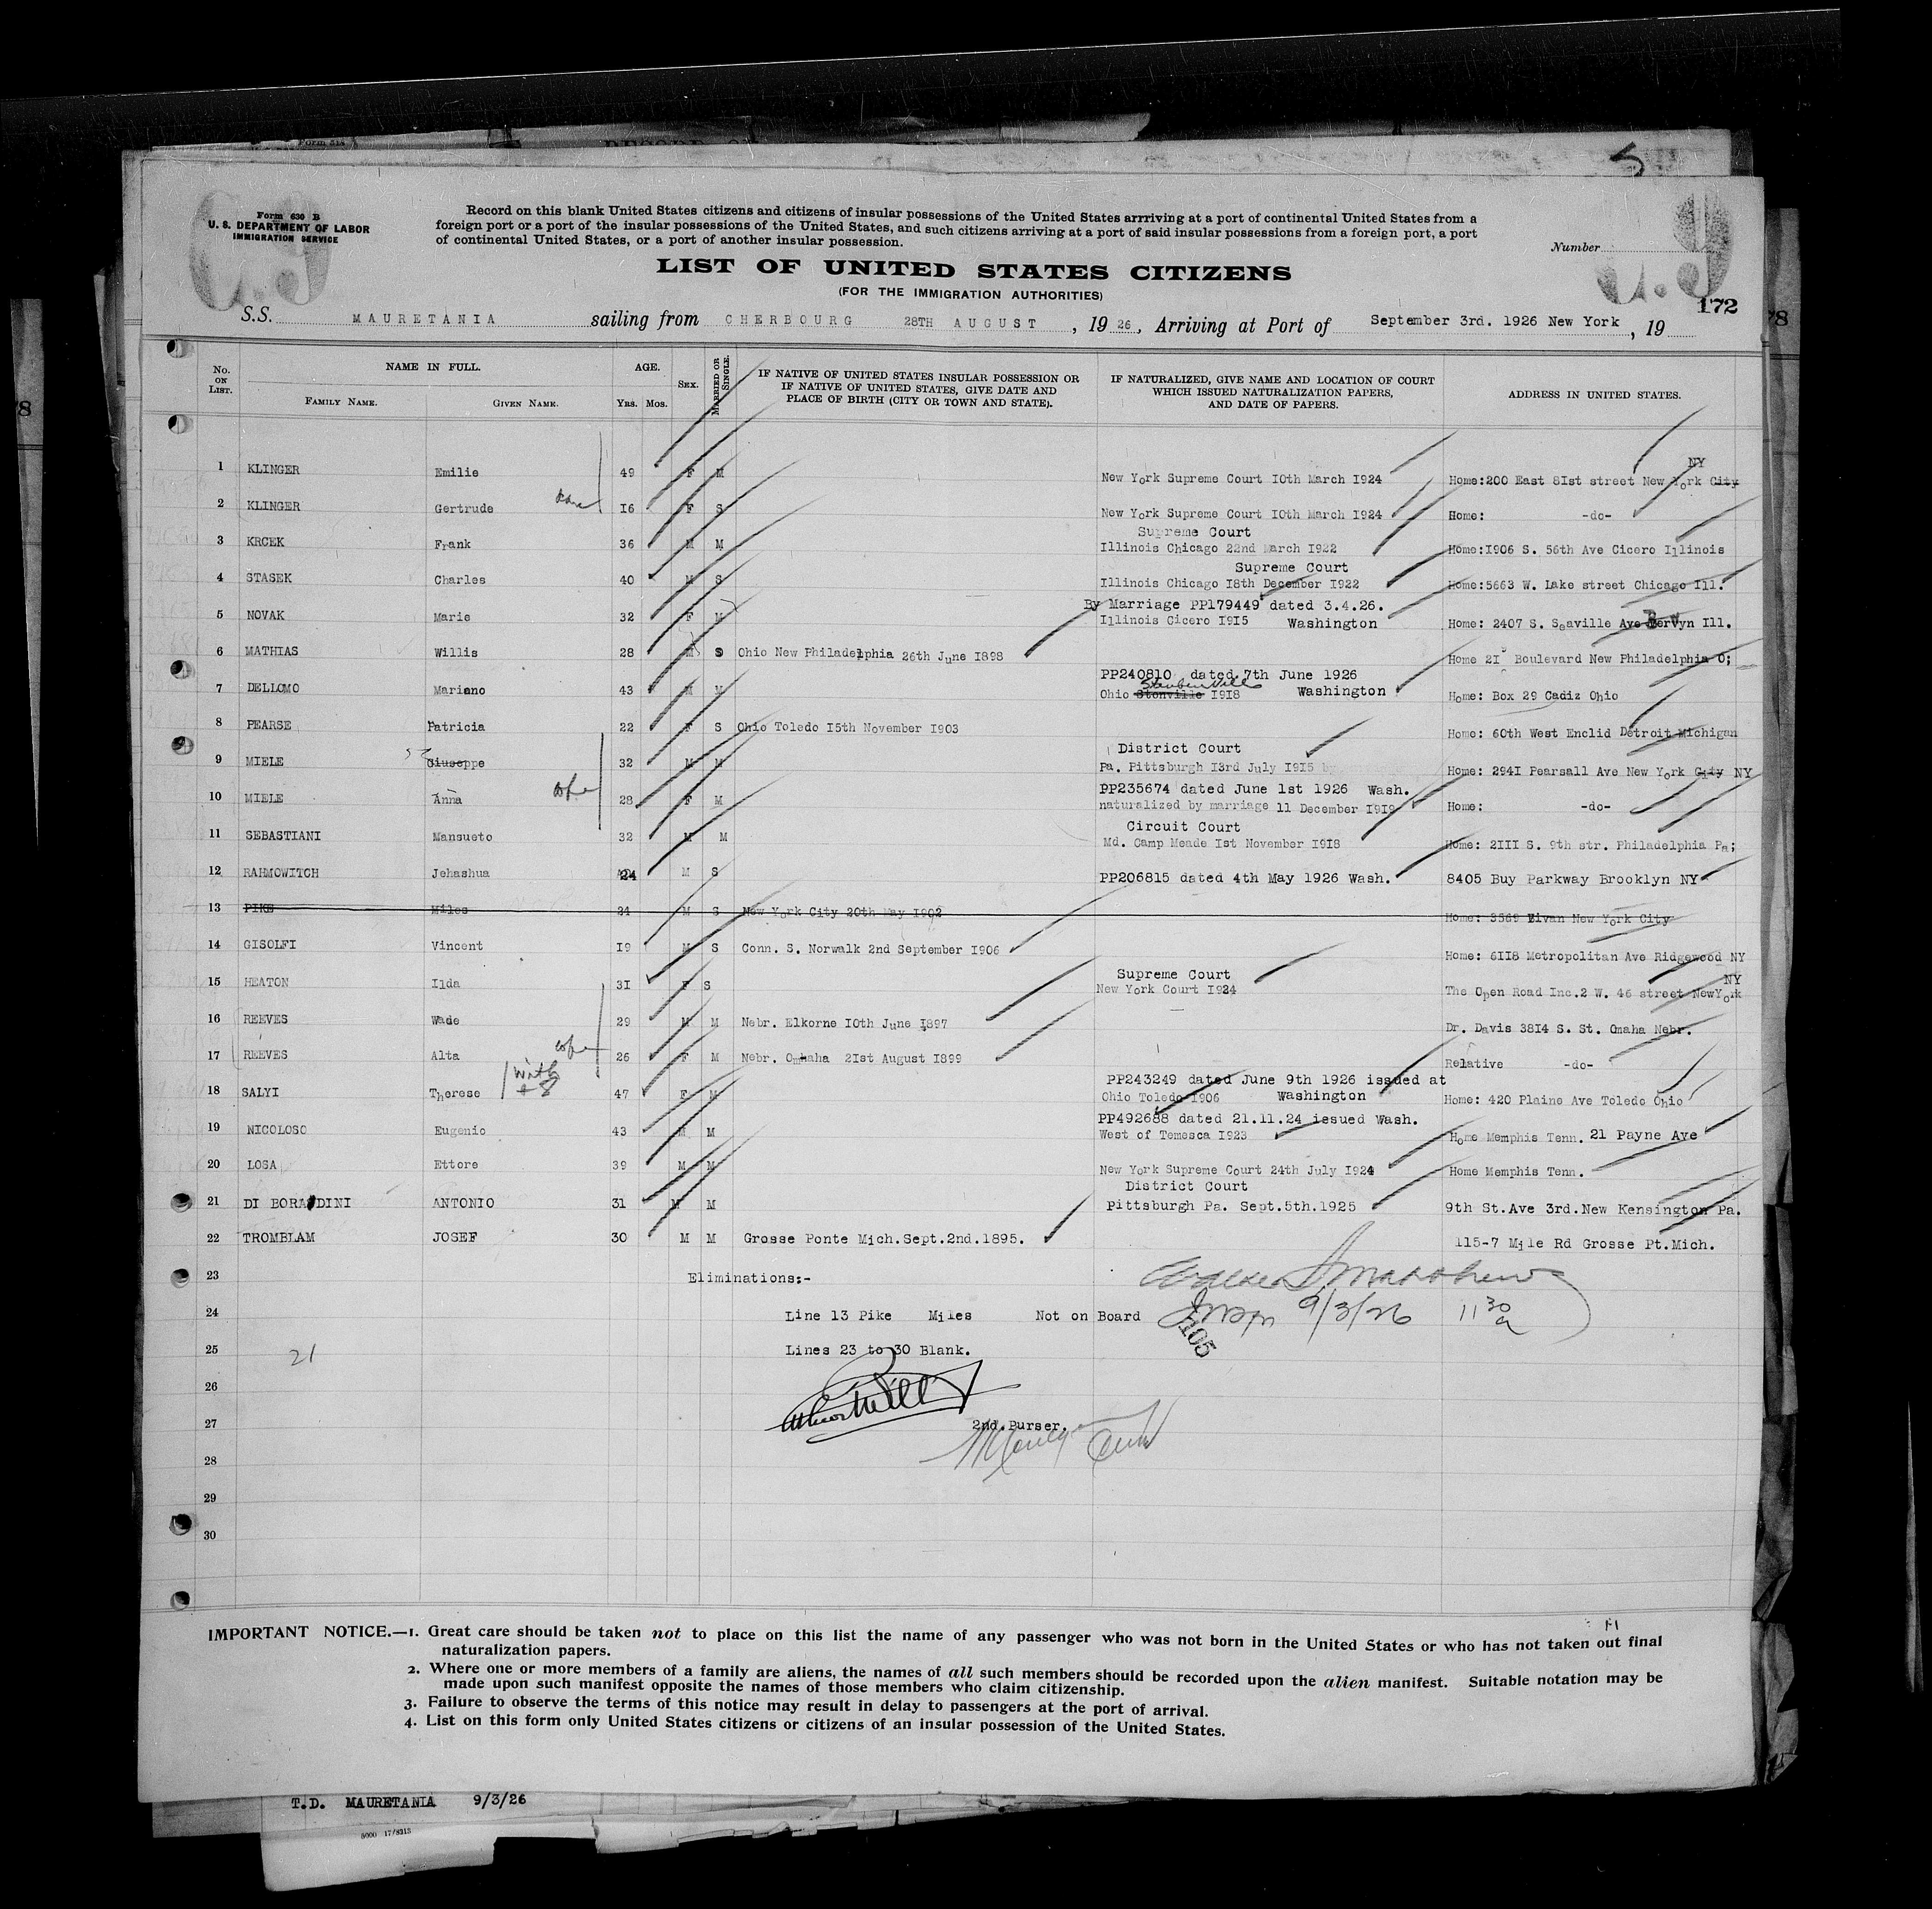 Form 514
5
Form 630 B
U. S. DEPARTMENT OF LABOR
IMMIGRATION SERVICE
Record on this blank United States citizens and citizens of insular possessions of the United States arrriving at a port of continental United States from a
foreign port or a port of the insular possessions of the United States, and such citizens arriving at a port of said insular possessions from a foreign port, a port
of continental United States, or a port of another insular possession.
Number
LIST OF UNITED STATES CITIZENS
(FOR THE IMMIGRATION AUTHORITIES)
172
S.S. MAURETANIA sailing from CHERBOURG 28TH AUGUST, 19 26, Arriving at Port of September 3rd. 1926 New York, 19
No. ON LIST. NAME IN FULL. AGE. SEX. MARRIED OR SINGLE. IF NATIVE OF UNITED STATES INSULAR POSSESSION OR IF NATIVE OF UNITED STATES, GIVE DATE AND PLACE OF BIRTH (CITY OR TOWN AND STATE). IF NATURALIZED, GIVE NAME AND LOCATION OF COURT WHICH ISSUED NATURALIZATION PAPERS, AND DATE OF PAPERS. ADDRESS IN UNITED STATES.
FAMILY NAME. GIVEN NAME. YRS. MOS.
NY
1 KLINGER Emilie 49 F M New York Supreme Court 10th March 1924 Home:200 East 81st street New York City
2 KLINGER Gertrude 16 F S New York Supreme Court 10th March 1924 Home: -do-
Supreme Court
3 KRCEK Frank 36 M M Illinois Chicago 22nd March 1922 Home:1906 S. 56th Ave Cicero Illinois
Supreme Court
4 STASEK Charles 40 M S Illinois Chicago 18th December 1922 Home:5663 W. Lake street Chicago Ill.
By Marriage PP179449 dated 3.4.26.
5 NOVAK Marie 32 F M Illinois Cicero 1915 Washington Home: 2407 S. Seaville Ave Bervyn Ill.
6 MATHIAS Willis 28 M S Ohio New Philadelphia 26th June 1898 Home 215 Boulevard New Philadelphia O;
PP240810 dated 7th June 1926
Steubenville
7 DELLOMO Mariano 43 M M Ohio Stonville 1918 Washington Home: Box 29 Cadiz Ohio
8 PEARSE Patricia 22 F S Ohio Toledo 15th November 1903 Home: 60th West Enclid Detroit Michigan
District Court
9 MIELE Giuseppe 32 M M Pa. Pittsburgh 13rd July 1915 by Home: 2941 Pearsall Ave New York City NY
PP235674 dated June 1st 1926 Wash.
10 MIELE Anna wife 28 F M naturalized by marriage 11 December 1919 Home: -do-
Circuit Court
11 SEBASTIANI Mansueto 32 M M Md. Camp Meade 1st November 1918 Home: 2111 S. 9th str. Philadelphia Pa;
12 RAHMOWITCH Jehashua 24 M S PP206815 dated 4th May 1926 Wash. 8405 Buy Parkway Brooklyn NY
13 PIKE Miles 24 M S New York City 20th May 1902 Home: 3569 Eivan New York City
14 GISOLFI Vincent 19 M S Conn. S. Norwalk 2nd September 1906 Home: 6118 Metropolitan Ave Ridgewood NY
Supreme Court NY
15 HEATON Ilda 31 F S New York Court 1924 The Open Road Inc.2 W. 46 street NewYork
16 REEVES Wade 29 M M Nebr. Elkorne 10th June 1897 Dr. Davis 3814 S. St. Omaha Nebr.
17 REEVES Alta wife 26 F M Nebr. Omhaha 21st August 1899 Relative -do-
with
+ 8
PP243249 dated June 9th 1926 issued at
18 SALYI Therese 47 F M Ohio Toledo 1906 Washington Home: 420 Plaine Ave Toledo Ohio
PP492688 dated 21.11.24 issued Wash.
19 NICOLOSO Eugenio 43 M M West of Temesca 1923 Home Memphis Tenn. 21 Payne Ave
20 LOSA Ettore 39 M M New York Supreme Court 24th July 1924 Home Memphis Tenn.
District Court
21 DI BORADINI ANTONIO 31 M M Pittsburgh Pa. Sept.5th.1925 9th St.Ave 3rd.New Kensington Pa.
22 TROMBLAM JOSEF 30 M M Grosse Ponte Mich.Sept.2nd.1895. 115-7 Mile Rd Grosse Pt.Mich.
23 Eliminations:-
24 Line 13 Pike Miles Not on Board 9/3/26 11 30 a
105
25 21 Lines 23 to 30 Blank.
26
27 2nd.Purser.
28
29
30
IMPORTANT NOTICE.—1. Great care should be taken not to place on this list the name of any passenger who was not born in the United States or who has not taken out final
naturalization papers.
2. Where one or more members of a family are aliens, the names of all such members should be recorded upon the alien manifest. Suitable notation may be
made upon such manifest opposite the names of those members who claim citizenship.
3. Failure to observe the terms of this notice may result in delay to passengers at the port of arrival.
4. List on this form only United States citizens or citizens of an insular possession of the United States.
T.D. MAURETANIA 9/3/26
5000 17/8315